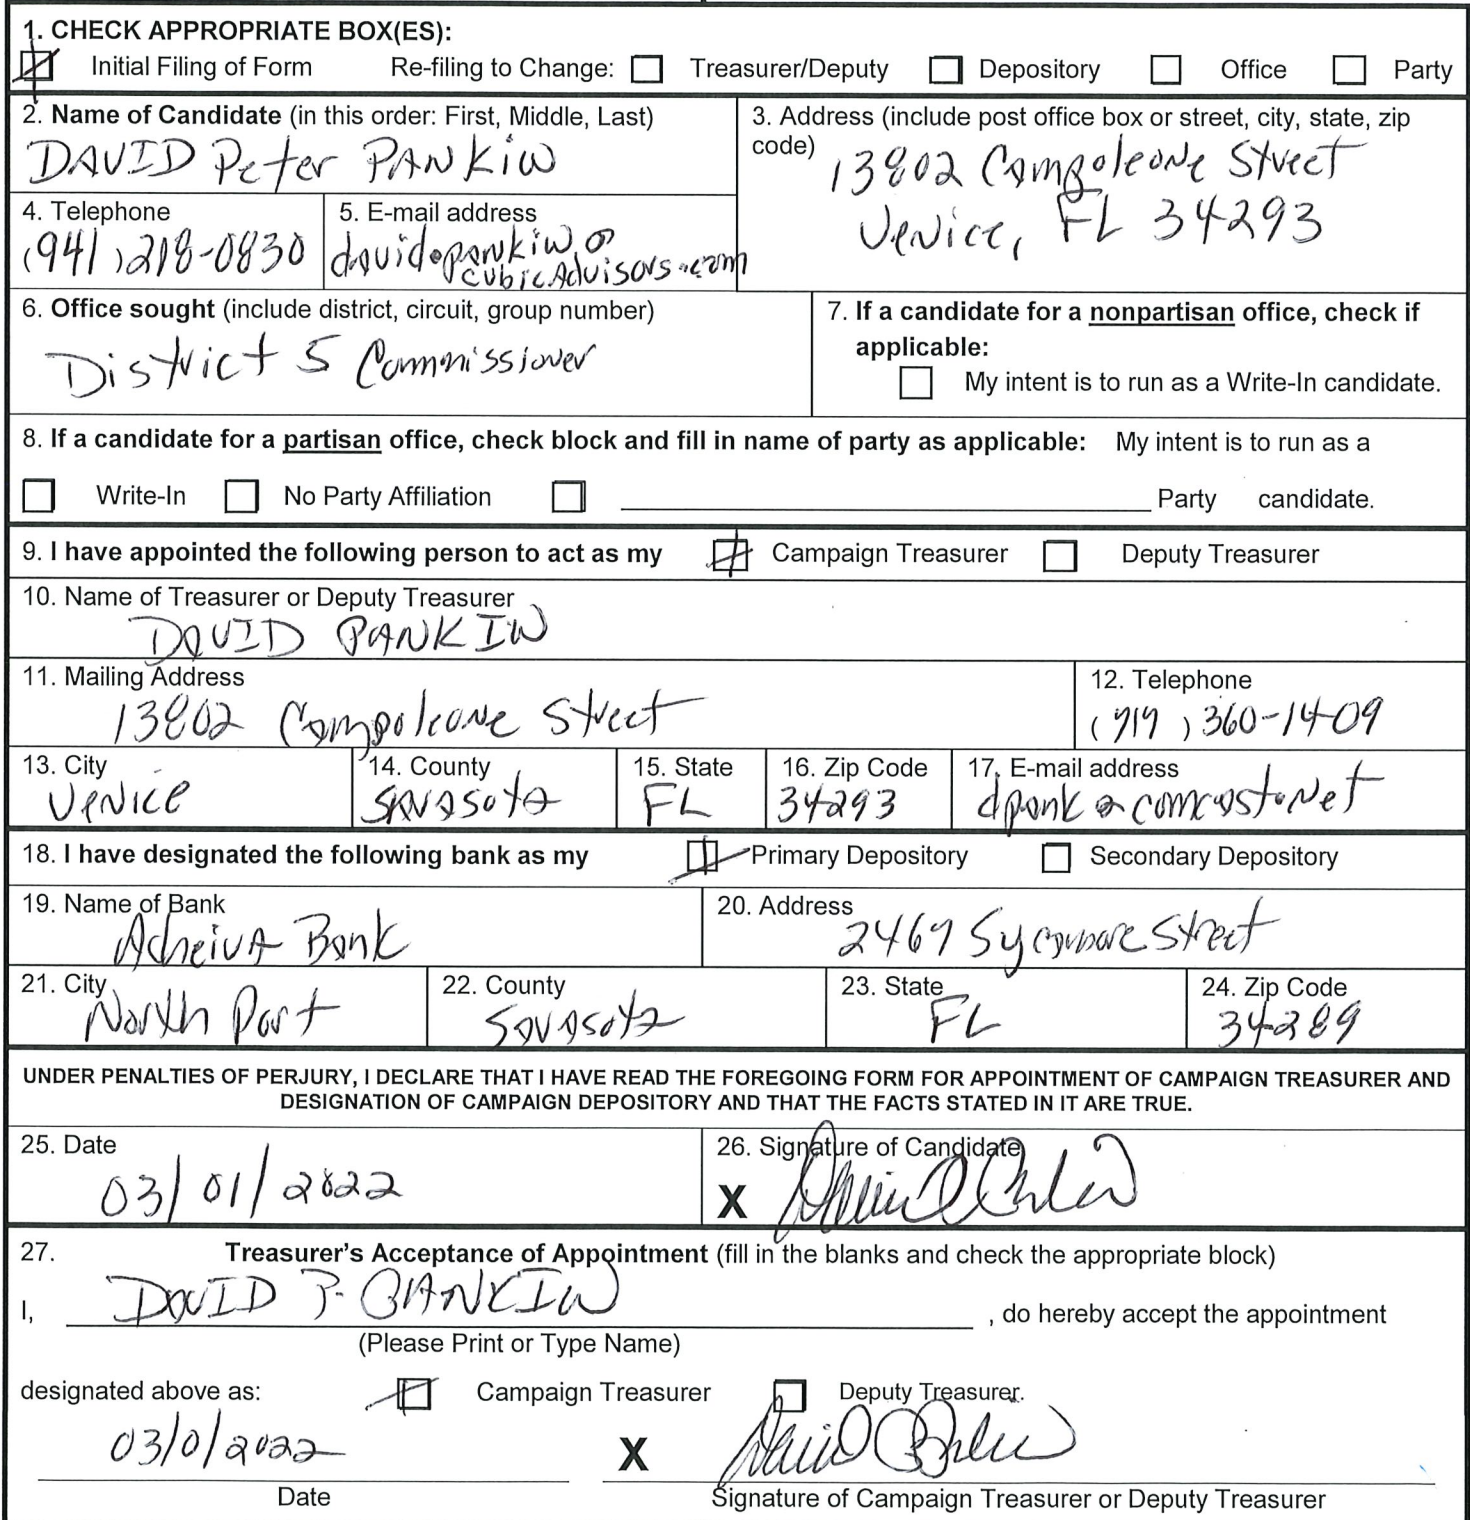 1. CHECK APPROPRIATE BOX(ES):
Initial Filing of Form Re-filing to Change: Treasurer/Deputy Depository Office Party
2. Name of Candidate (in this order: First, Middle, Last)
DAVID Peter PANKIW
3. Address (include post office box or street, city, state, zip
code)
13802 Campoleone Street
Venice, FL 34293
4. Telephone
(941) 218-0830
5. E-mail address
david.pankiw@
cubicAdvisors.com
6. Office sought (include district, circuit, group number)
District 5 Commissioner
7. If a candidate for a nonpartisan office, check if
applicable:
My intent is to run as a Write-In candidate.
8. If a candidate for a partisan office, check block and fill in name of party as applicable: My intent is to run as a
Write-In No Party Affiliation Party candidate.
9. I have appointed the following person to act as my Campaign Treasurer Deputy Treasurer
10. Name of Treasurer or Deputy Treasurer
DAVID PANKIW
11. Mailing Address
13802 Campoleone Street
12. Telephone
(919) 360-1409
13. City
Venice
14. County
Sarasota
15. State
FL
16. Zip Code
34293
17. E-mail address
dpank@comcast.net
18. I have designated the following bank as my Primary Depository Secondary Depository
19. Name of Bank
Acheiva Bank
20. Address
2467 Sycamore Street
21. City
North Port
22. County
Sarasota
23. State
FL
24. Zip Code
34289
UNDER PENALTIES OF PERJURY, I DECLARE THAT I HAVE READ THE FOREGOING FORM FOR APPOINTMENT OF CAMPAIGN TREASURER AND
DESIGNATION OF CAMPAIGN DEPOSITORY AND THAT THE FACTS STATED IN IT ARE TRUE.
25. Date
03/01/2022
26. Signature of Candidate
X
27. Treasurer's Acceptance of Appointment (fill in the blanks and check the appropriate block)
I, DAVID P. PANKIW , do hereby accept the appointment
(Please Print or Type Name)
designated above as: Campaign Treasurer Deputy Treasurer.
03/0/2022 X
Date Signature of Campaign Treasurer or Deputy Treasurer